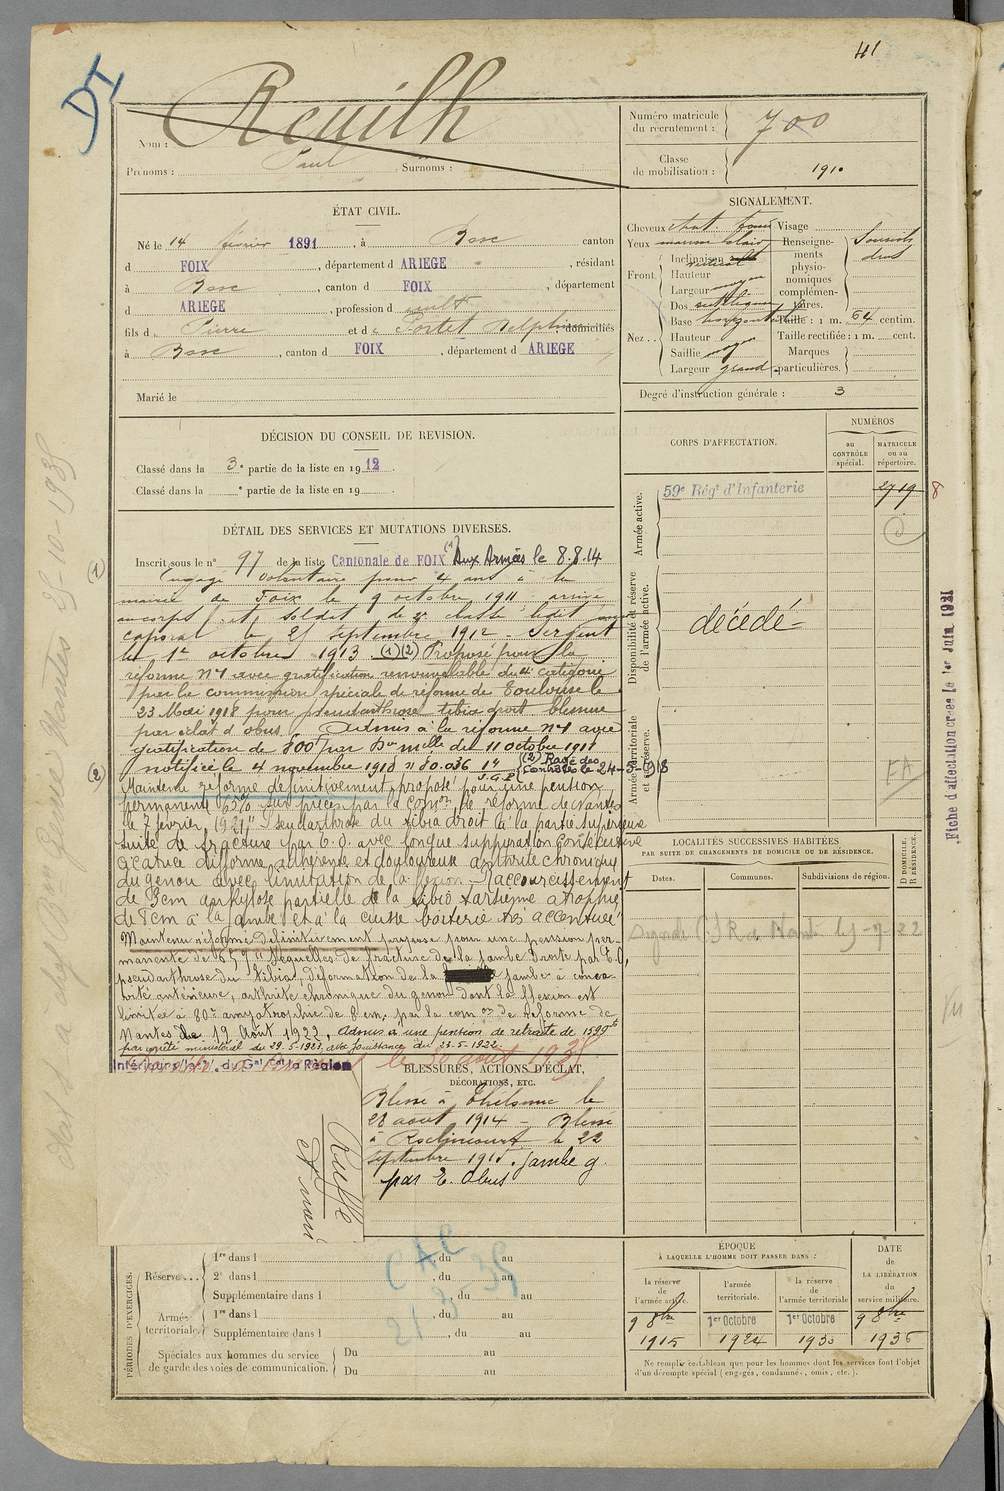 41
DI
Reuilh
Nom :
Prénoms : Paul Surnoms :
Numéro matricule du recrutement : 700
Classe de mobilisation : 1910
ÉTAT CIVIL.
Né le 14 février 1891, à Bosc canton
d FOIX, département d ARIEGE, résidant
à Bosc, canton d FOIX, département
d ARIEGE, profession de cult
fils de Pierre et de Portet Delphine domiciliés
à Bosc, canton d FOIX, département d ARIEGE
Marié le
SIGNALEMENT.
Cheveux chat. foncé Visage
Yeux marron clair Renseigne-
ments
physio-
nomiques
complémen-
taires.
Sourcils
Front.
Inclinaison vertical
Hauteur moyen
Largeur
Nez . .
Dos rectiligne
Base horizontale
Hauteur moyen
Saillie moyen
Largeur grand
Taille : 1 m. 64 centim.
Taille rectifiée : 1 m. cent.
Marques
particulières.
Degré d'instruction générale : 3
DÉCISION DU CONSEIL DE REVISION.
Classé dans la 3e partie de la liste en 1912.
Classé dans la e partie de la liste en 19
DÉTAIL DES SERVICES ET MUTATIONS DIVERSES.
Inscrit sous le n° 97 de la liste Cantonale de FOIX (1) Aux Armées le 8.8.14
Engagé volontaire pour 4 ans à la
mairie de Foix le 9 octobre 1911 arrivé
au corps et soldat de 2e classe ledit
caporal le 25 septembre 1912 - Sergent
le 1er octobre 1913 (1)(2) Proposé pour la
réforme n°1 avec gratification renouvelable de 4e catégorie
par la commission spéciale de réforme de Toulouse le
23 Mai 1918 pour pseudarthrose tibia droit blessure
par éclat d'obus. Admis à la réforme n°1 avec
gratification de 800f par Don mielle du 11 octobre 1918
notifiée le 4 novembre 1918 n° 80.036 (2) Rayé des contrôles le 24-5-1918
Maintenu réformé définitivement, proposé pour une pension
permanente 65% sur pièces par la comon de réforme de Nantes
le 7 février 1921 "Pseudarthrose du tibia droit à la partie supérieure
suite de fracture par E.O. avec longue suppuration consécutive
Cicatrice difforme, adhérente et douloureuse arthrite chronique
du genou avec limitation de la flexion - Raccourcissement
de 3cm ankylose partielle de la tibio tarsienne atrophie
de 8cm à la jambe et à la cuisse boiterie très accentuée"
Maintenu réformé définitivement proposé pour une pension per-
manente de 65% "Séquelles de fracture de la jambe droite par E.O,
pseudarthrose du tibia, déformation de la jambe à conca-
vité antérieure, arthrite chronique du genou dont la flexion est
limitée à 80° amyotrophie de 8 cm. par la comon de Réforme de
Nantes le 19 Août 1922. Admis à une pension de retraite de 1599f
par arrêté ministériel du 29.5.1923 avec jouissance du 23.5.1922.
le 30 août 1938
CORPS D'AFFECTATION.
NUMÉROS
au CONTRÔLE spécial.
MATRICULE ou au répertoire.
Armée active.
59e Régt d'Infanterie 2719 8
Disponibilité et réserve de l'armée active.
décédé
Armée territoriale et sa réserve.
EA
Fiche d'affectation créée le 1er Juin 1921
LOCALITÉS SUCCESSIVES HABITÉES
PAR SUITE DE CHANGEMENTS DE DOMICILE OU DE RÉSIDENCE.
Dates. Communes. Subdivisions de région.
D DOMICILE. R RÉSIDENCE.
BLESSURES, ACTIONS D'ÉCLAT,
DÉCORATIONS, ETC.
Blessé à Thélonne le
28 août 1914 - Blessé
à Roclincourt le 22
septembre 1915. Jambe g.
par E. Obus
PÉRIODES D'EXERCICES.
Réserve . . .
1re dans l , du au
2e dans l , du au
Supplémentaire dans l , du au
Armée territoriale.
1re dans l , du au
Supplémentaire dans l , du au
Spéciales aux hommes du service
de garde des voies de communication.
Du au
Du au
ÉPOQUE
À LAQUELLE L'HOMME DOIT PASSER DANS :
la réserve de l'armée active.
l'armée territoriale.
la réserve de l'armée territoriale
DATE de LA LIBÉRATION du service militaire.
9 8bre 1915
1er Octobre 1924
1er Octobre 1930
9 8bre 1936
Ne remplir ce tableau que pour les hommes dont les services font l'objet
d'un décompte spécial (engagés, condamnés, omis, etc.).